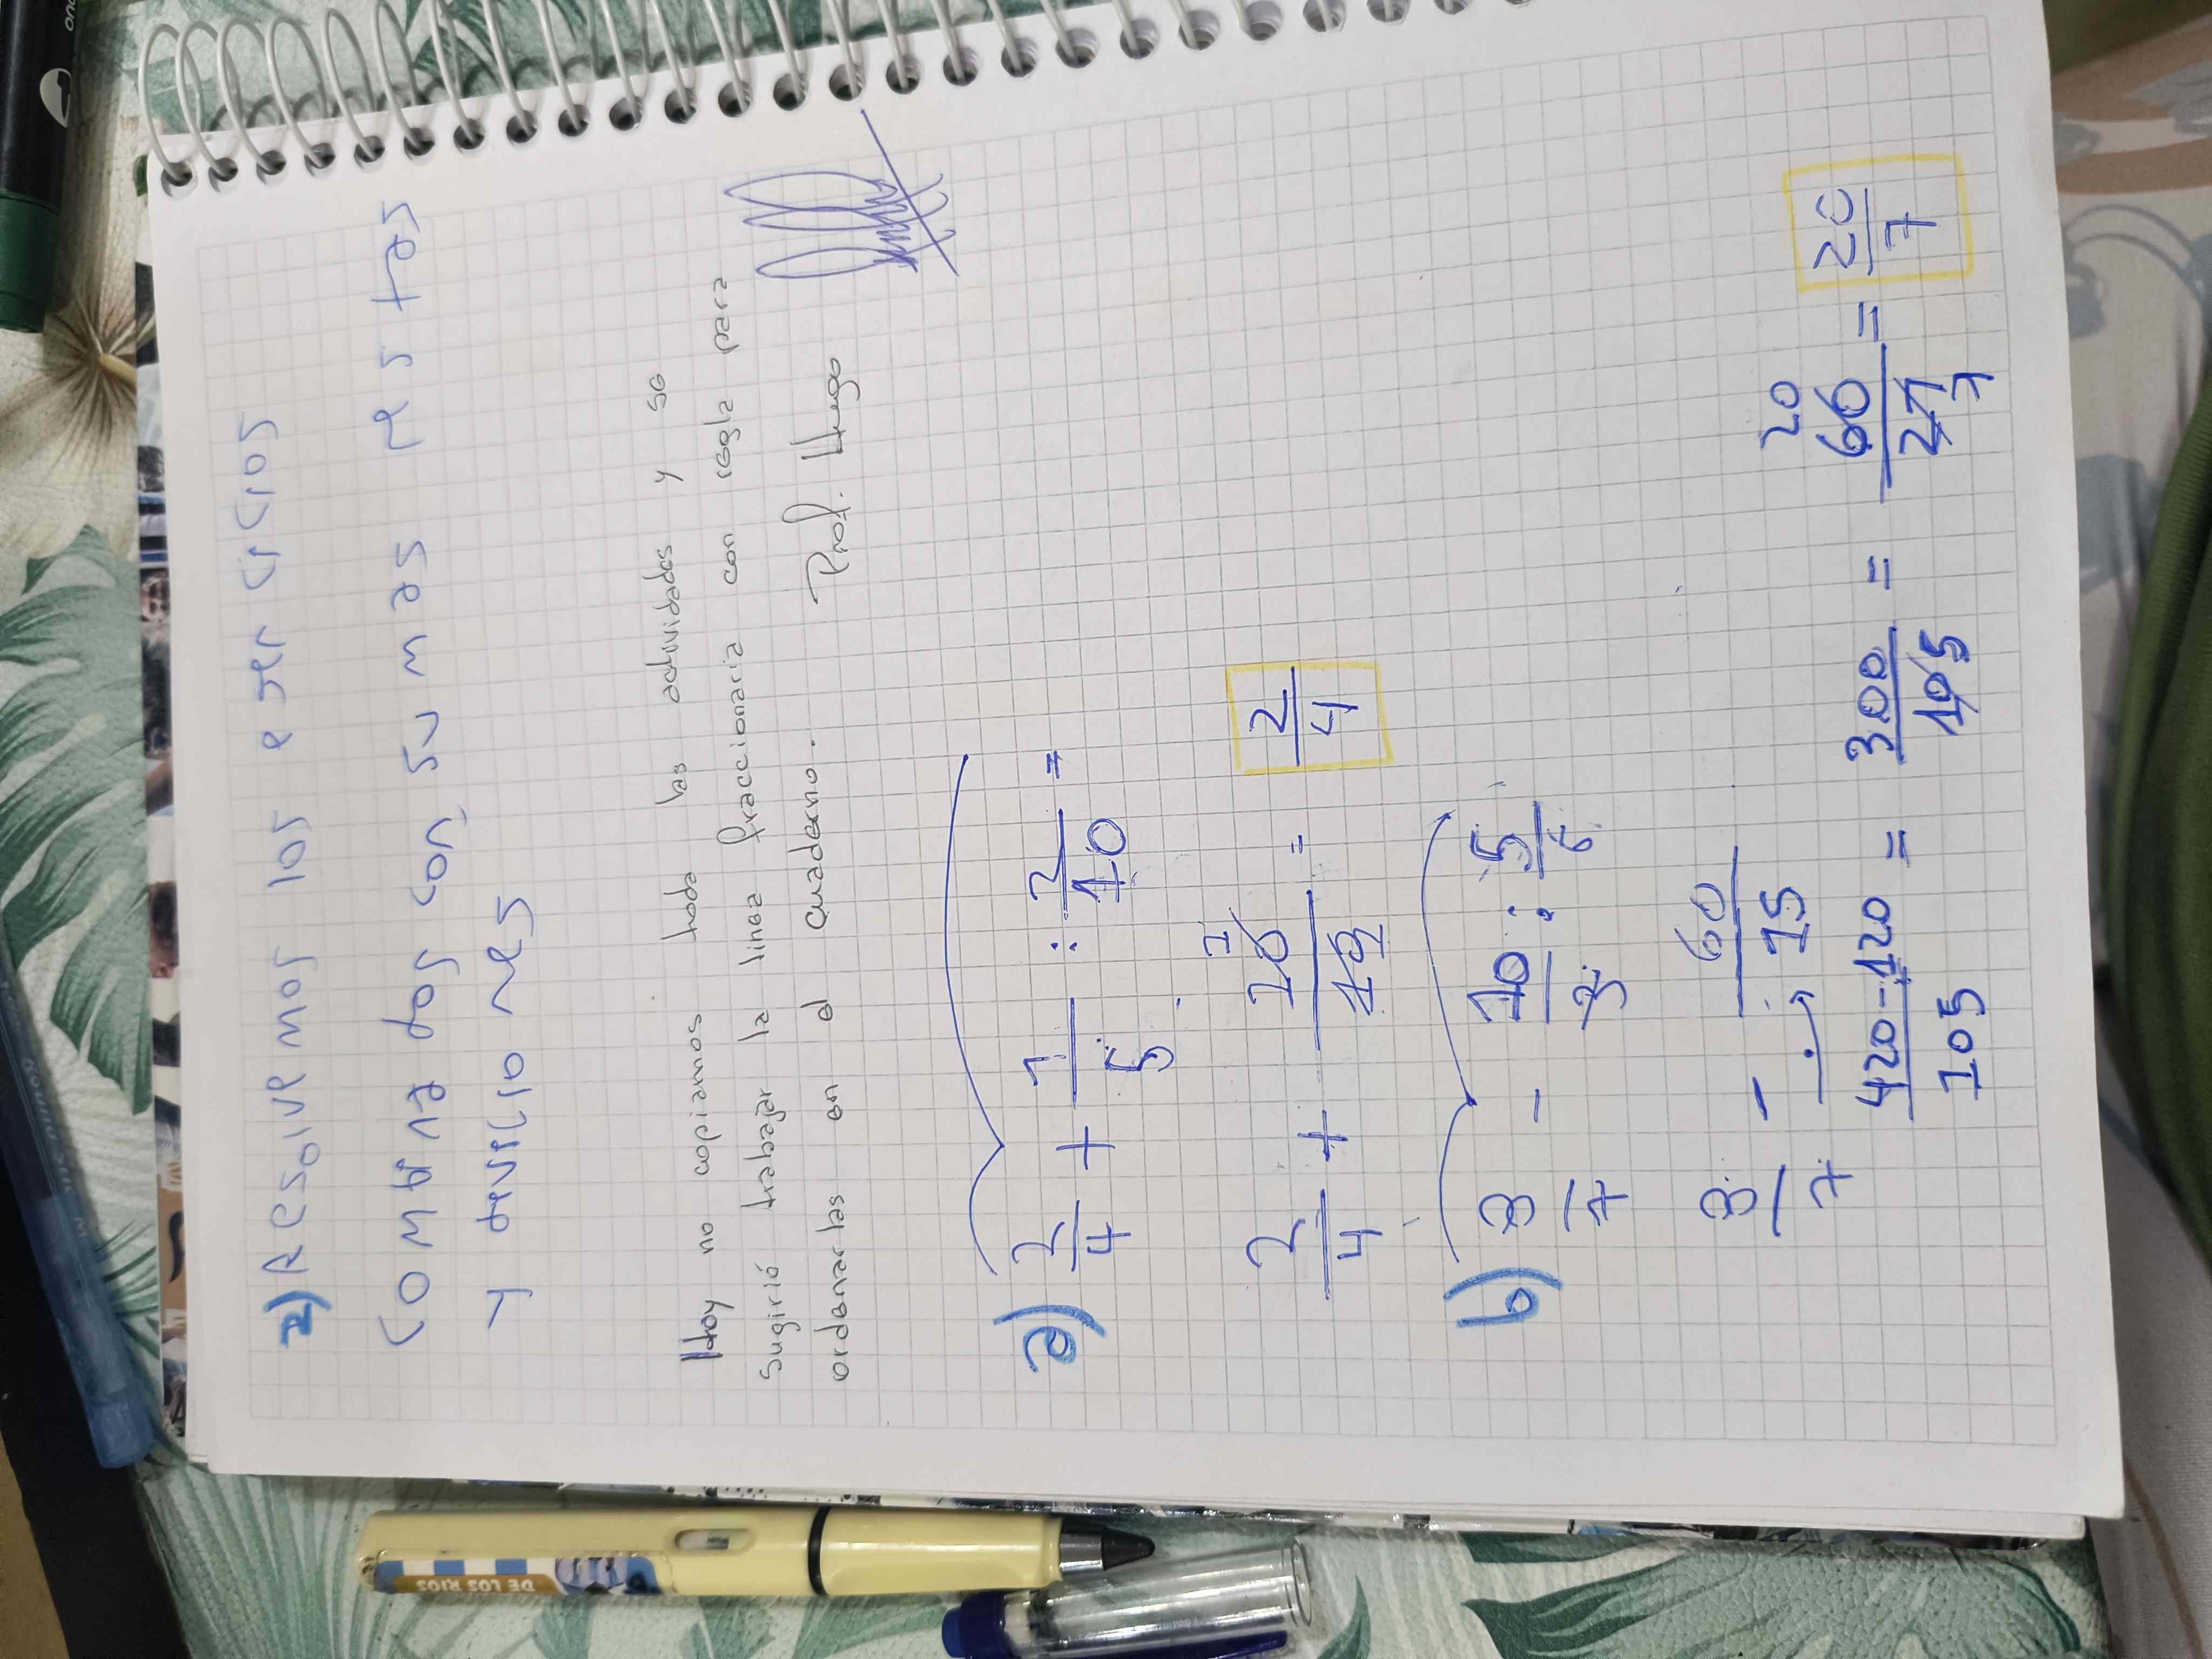 2) Resolvemos los ejercicios
combinados con sumas restas
y divicio nes
Hoy no copiamos toda las actividades y se
sugirió trabajar la linea fraccionaria con regla para
ordenarlas en el cuaderno. Prof. Hugo
a) 2/4 + 1/5 : 2/10 =
2/4 + 10/10 = 2/4
b) 3/7 - 10/3 : 5/6
3/7 - 60/15
420-120/105 = 300/105 = 60/21 = 20/7
20
7
DE LOS RIOS